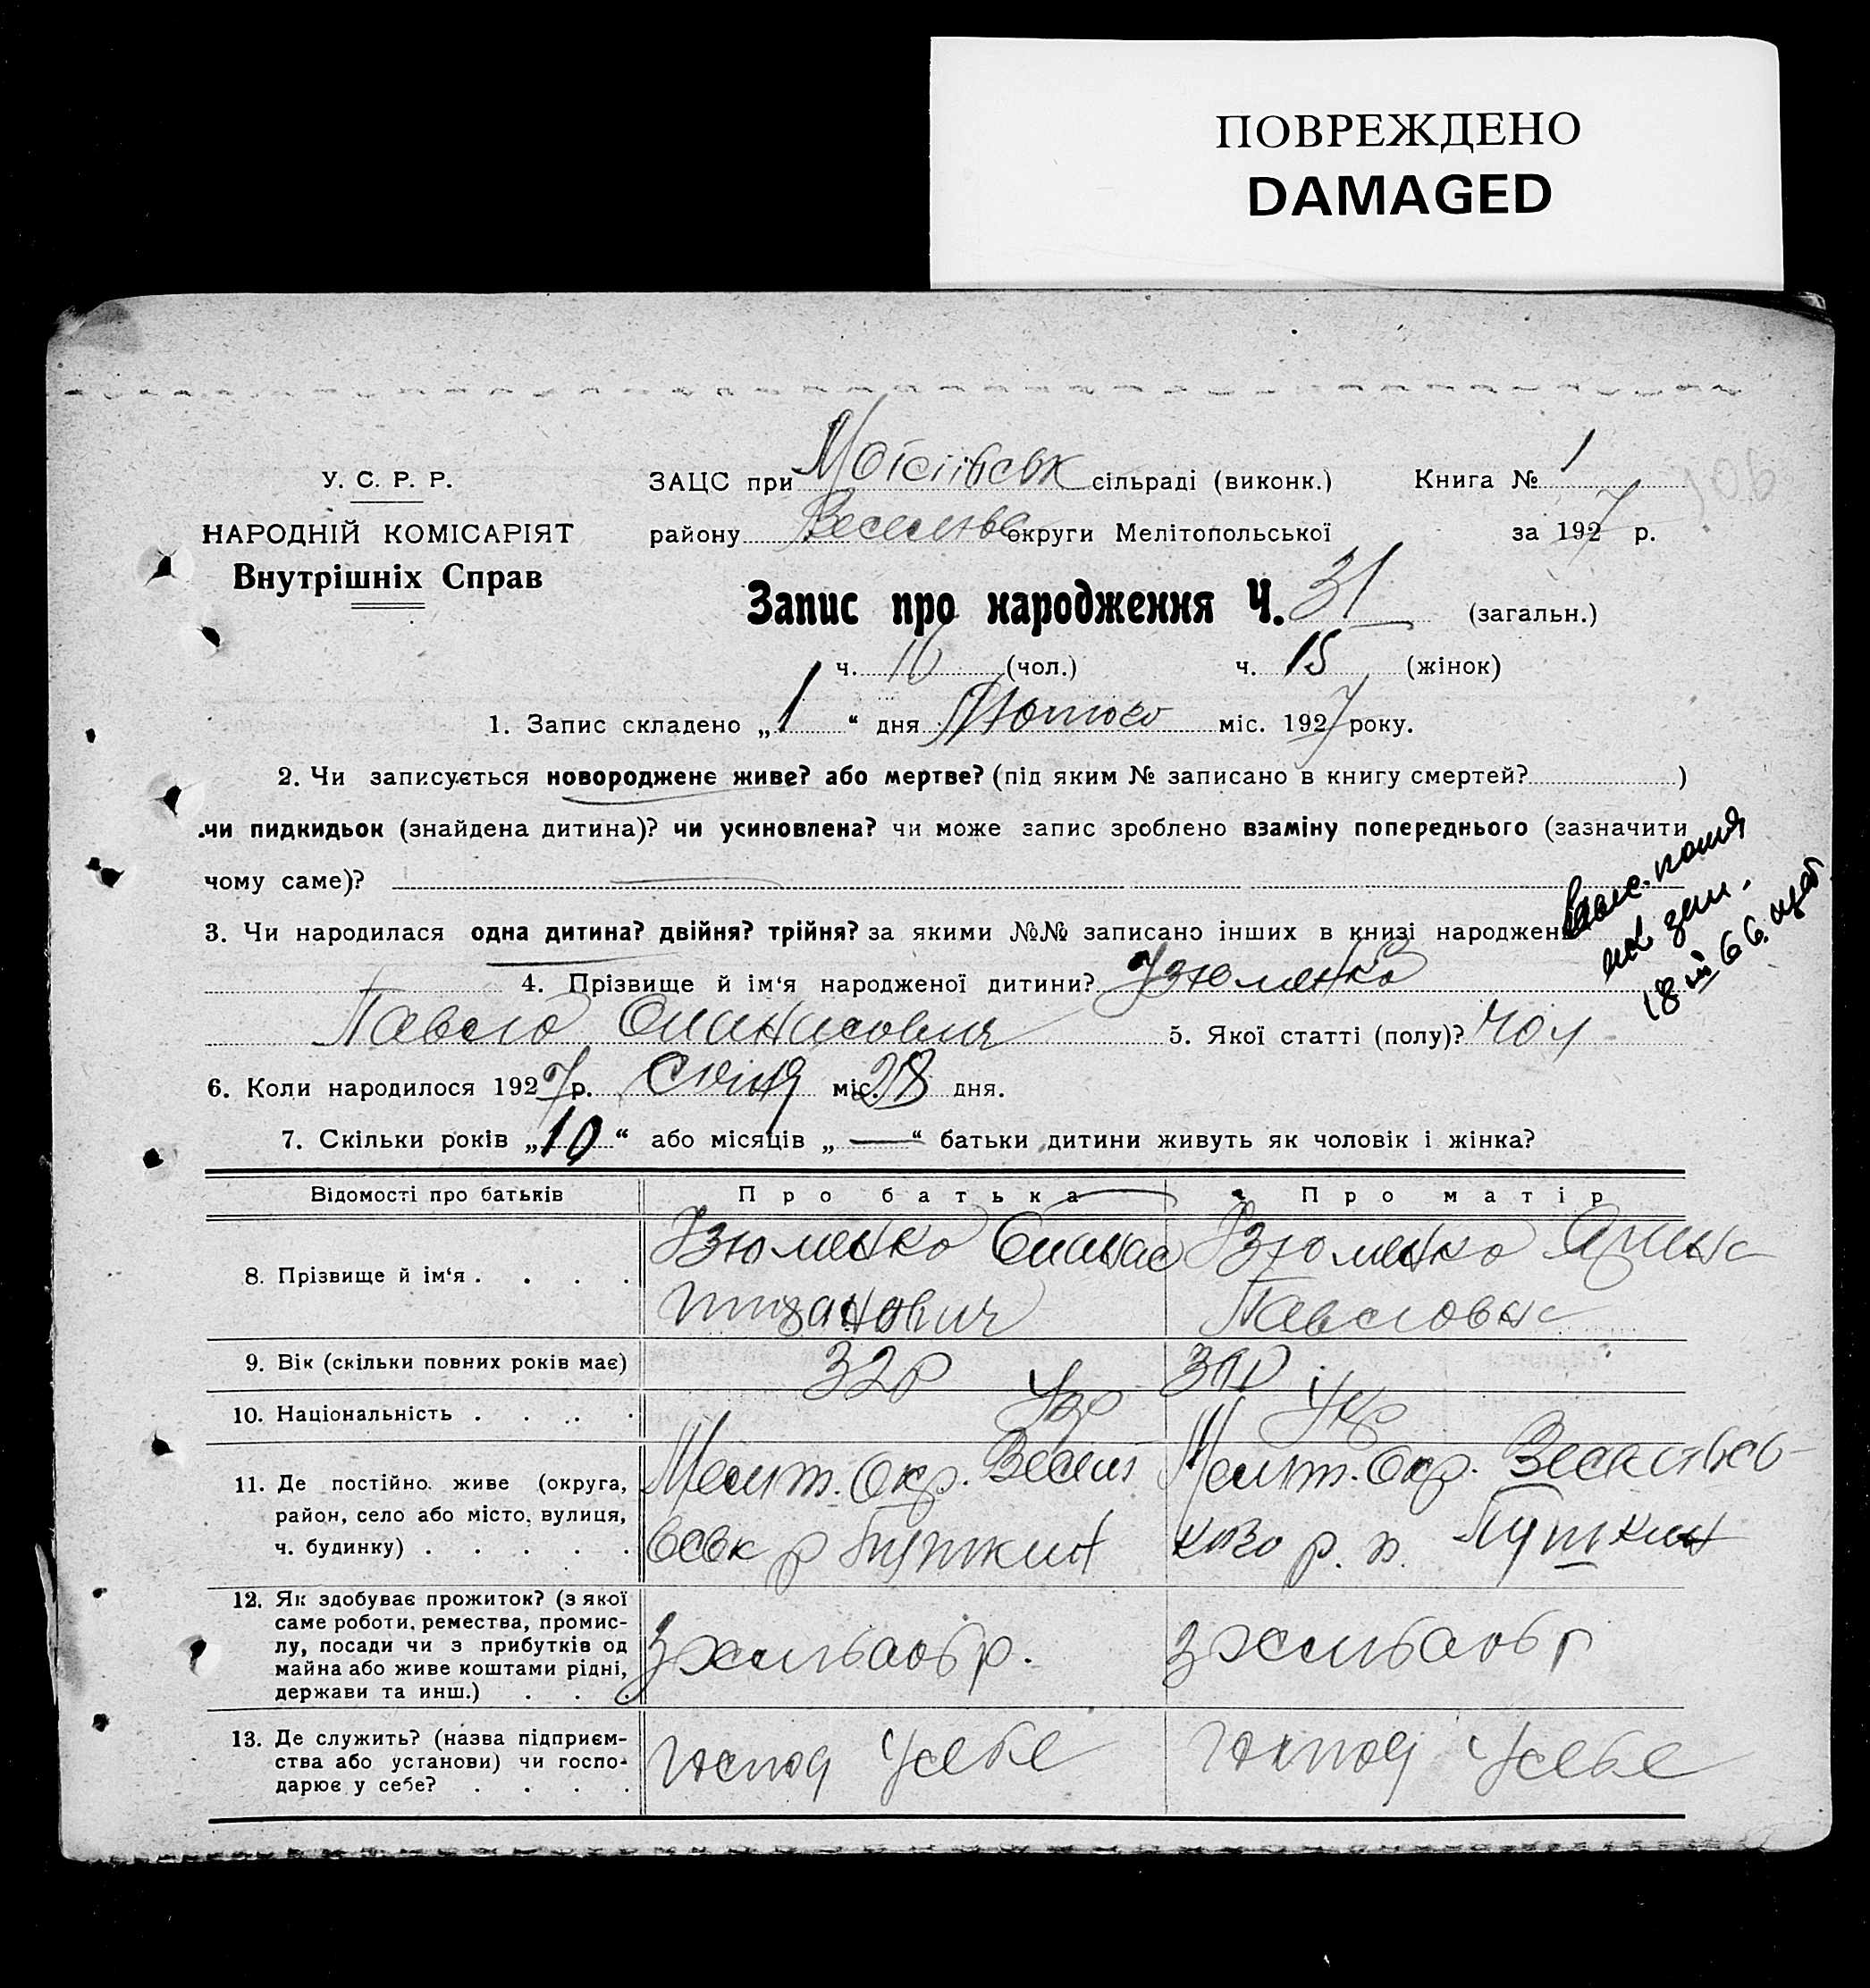 ПОВРЕЖДЕНО
DAMAGED
У. С. Р. Р.
НАРОДНІЙ КОМІСАРІЯТ
Внутрішніх Справ
ЗАЦС при Моісіївськ сільраді (виконк.) Книга № 1
району округи Мелітопольської за 1927 р.
106
Запис про народження Ч. 31 (загальн.)
ч. 16 (чол.) ч. 15 (жінок)
1. Запис складено „1“ дня Лютого міс. 1927 року.
2. Чи записується новороджене живе? або мертве? (під яким № записано в книгу смертей? )
чи пидкидьок (знайдена дитина)? чи усиновлена? чи може запис зроблено взаміну попереднього (зазначити
чому саме)?
3. Чи народилася одна дитина? двійня? трійня? за якими №№ записано інших в книзі народжен
4. Прізвище й ім‘я народженої дитини? Ізюменко
Павло Опанасович 5. Якої статті (полу)? Чол
6. Коли народилося 1927 р. Січня міс. 28 дня.
7. Скільки років „10“ або місяців „—“ батьки дитини живуть як чоловік і жінка?
18 66
Відомості про батьків Про батька Про матір
8. Прізвище й ім‘я . . . . Ізюменко Опанас Ізюменко
Павловна
9. Вік (скільки повних років має) 32р
10. Національність . . . . Укр Укр
11. Де постійно живе (округа, район, село або місто, вулиця, ч. будинку) . . . . . Меліт. Окр. Весел Меліт. Окр.
р Пушкин р. п. Пушкин
12. Як здобуває прожиток? (з якої саме роботи, ремества, промислу, посади чи з прибутків од майна або живе коштами рідні, держави та инш.) . . . З хлібообр. З хлібообр
13. Де служить? (назва підприємства або установи) чи господарює у себе? . . . . Господ У себе Господ У себе